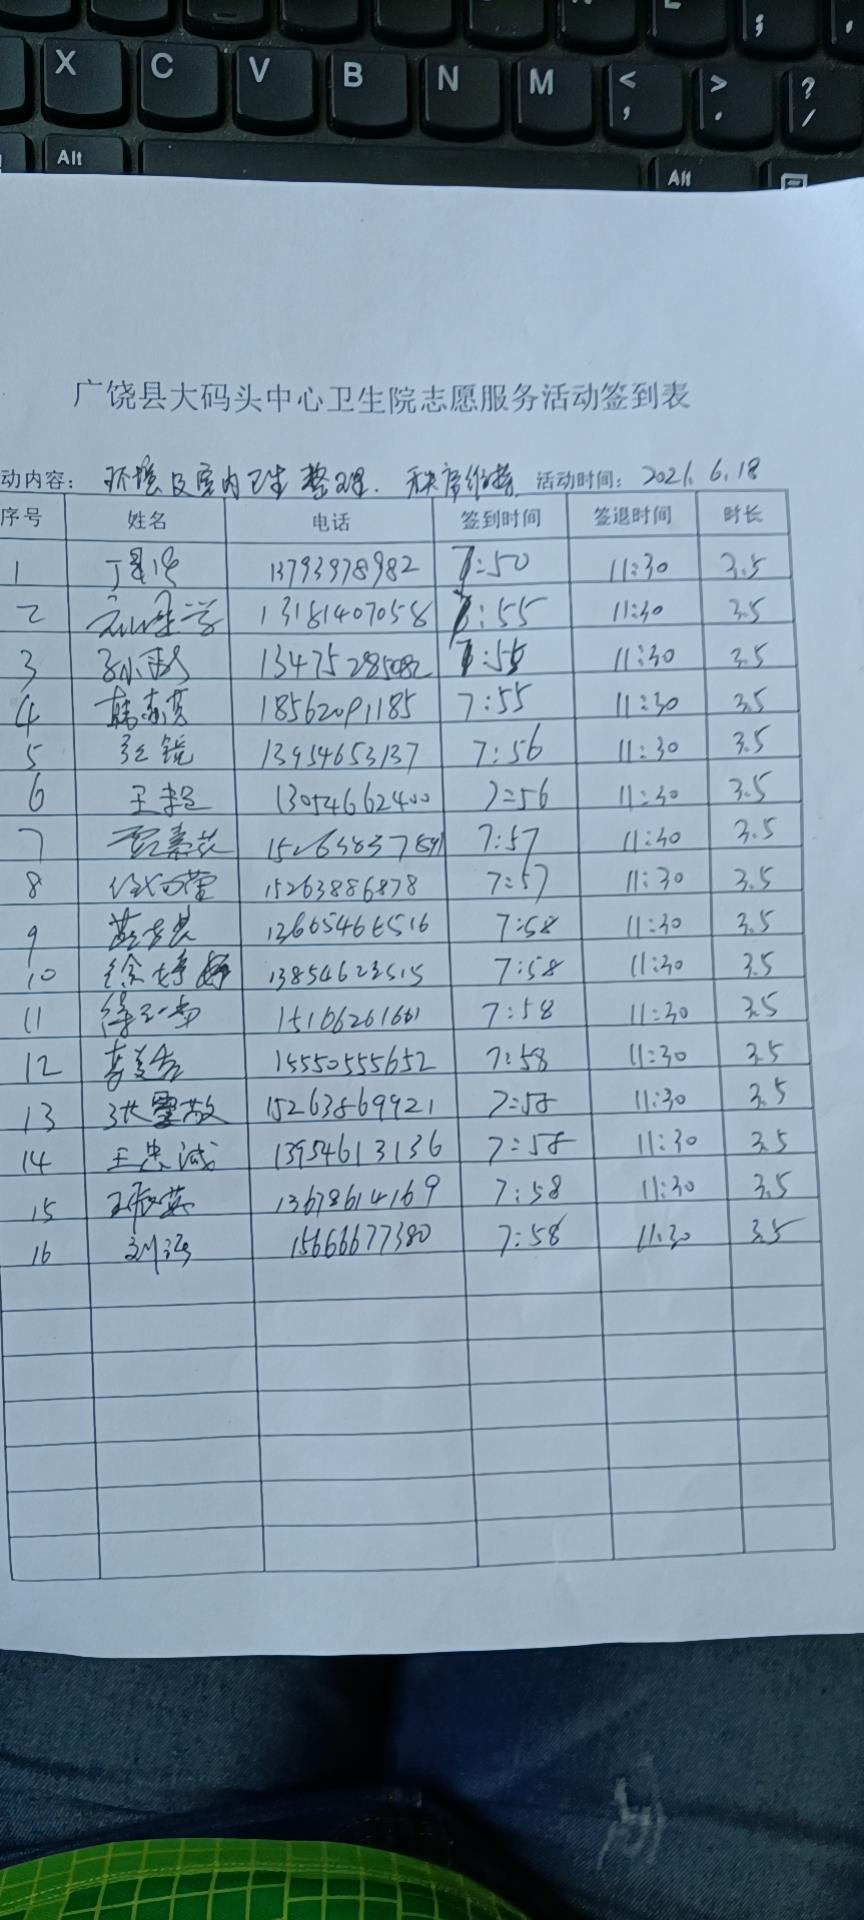 X C V B N M < , > . ? /
Alt Alt
广饶县大码头中心卫生院志愿服务活动签到表
动内容： 环境及室内卫生整理. 秩序维持. 活动时间： 2021. 6. 18
序号 姓名 电话 签到时间 签退时间 时长
1 13793978982 7:50 11:30 3.5
2 13181407058 7:55 11:30 3.5
3 孙小 13475285082 7:55 11:30 3.5
4 韩 18562091185 7:55 11:30 3.5
5 张镜 13954653137 7:56 11:30 3.5
6 王 13054662400 7:56 11:30 3.5
7 7:57 11:30 3.5
8 15263886878 7:57 11:30 3.5
9 13605466516 7:58 11:30 3.5
10 徐婷婷 7:58 11:30 3.5
11 7:58 11:30 3.5
12 李 15550555652 7:58 11:30 3.5
13 洪雪敬 15263869921 7:58 11:30 3.5
14 王忠诚 13954613136 7:58 11:30 3.5
15 13678614169 7:58 11:30 3.5
16 刘强 15666677380 7:58 11:30 3.5